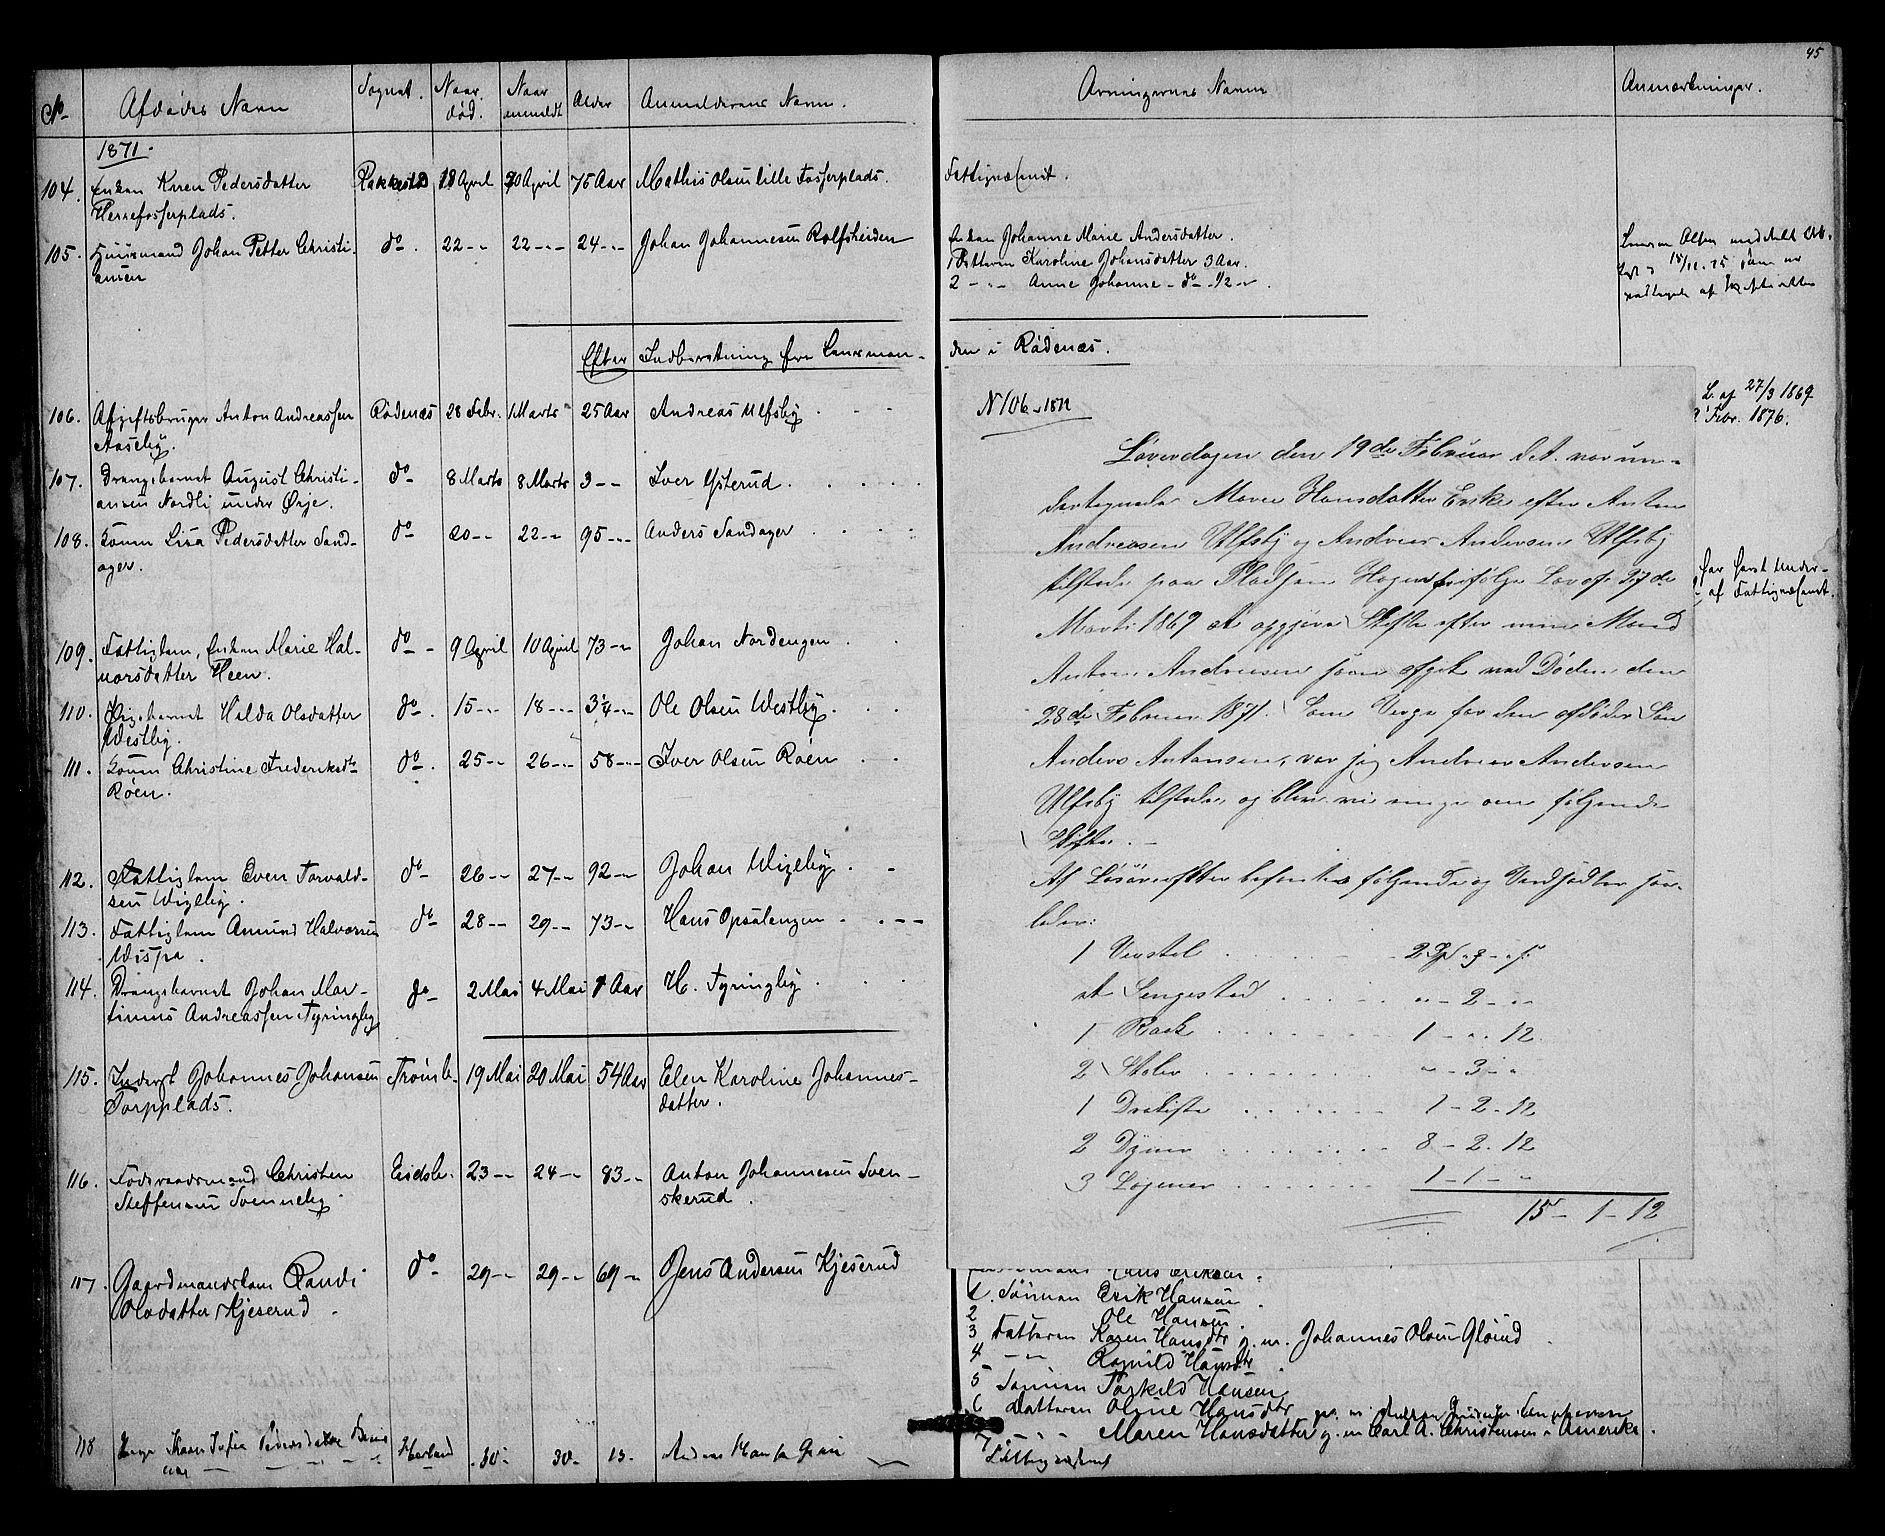 45
No
Afdødes Navn
Sognet.
Naar død.
Naar anmeldt
Alder
Anmelderens Navn.
Arvingernes Navne
Anmærkninger.
1871.
104. Enken Karen Pedersdatter Rakkestad 18 April 20 April 75 Aar Mathis Olsen lille Fosserplads. Fattigvæsenet.
Herrefosserplads.
105. Huusmand Johan Petter Christi- do. 22 -- 22 -- 24 -- Johan Johannesen Rolfsheiden Enken Johanne Marie Andersdatter.
ansen
1 Datteren Karoline Johansdatter 3 Aar.
2 - " - Anne Johanne - do - 1/2 - "
Efter Indberetning fra Lensman-
den i Rødenæs.
106. Afgiftsbruger Anton Andreassen Rødenæs 28 Febr. 1 Marts 25 Aar Andreas Ulfsby
Aaseby.
L. af 27/3 1869
Febr. 1876.
107. Drengebarnet August Christi- do 8 Marts 8 Marts 3 -- Iver Ysterud.
ansen Nordli under Ørje.
108. Konen Lisa Pedersdatter Sand- do 20 -- 22 -- 95 -- Anders Sandager
ager.
109. Fattiglem, Enken Marie Hal- do - 9 April 10 April 73 -- Johan Nordengen
vorsdatter Heen.
af Fattigvæsenet.
110. Pigebarnet Hilda Olsdatter do. 15 -- 18 -- 3/4 -- Ole Olsen Westby.
Westby.
111. Konen Christine Frederiksdtr do. 25 -- 26 -- 58 -- Iver Olsen Røen
Røen.
112. Fattiglem Even Torvald- do 26 -- 27 -- 92 -- Johan Wizeby
sen Wizeby.
113. Fattiglem Amund Halvorsen do 28 -- 29 -- 73 -- Hans Opsalengen
114. Drengebarnet Johan Mar- do 2 Mai 4 Mai 1 Aar H. Tyringby
tinius Andreassen Tyringby
115. Inderst Johannes Johansen Trømb. 19 Mai 20 Mai 54 Aar Elen Karoline Johannes-
Torpplads. datter.
116. Foderaadsmand Christen Eidsb. 23 -- 24 -- 83 -- Anton Johannesen Sven-
Steffensen Svenneby. skerud.
117. Gaardmandslem Randi do 29 -- 29 -- 69 -- Jens Andersen Kjeserud
Olsdatter Kjeserud
118 Karen Sofie Pedersdatter 30 - 30 - 13 -
No 106 - 1871
Løverdagen den 19de Februar d.A. var un-
dertegnede Maren Hansdatter Enke efter Anton
Andreasen Ulfsby og Andreas Andersen Ulfsby
tilstede paa Pladsen Hagen ifølge Lov af 27de
Marts 1869 at opgjøre Skifte efter min Mand
Anton Andreasen som afgik ved Døden den
28de Februar 1871. Som Verge for den afdødes Søn
Anders Antonsen, var jeg Andreas Andersen
Ulfsby tilstede, og blev vi enige om følgende
Skifte. -
Af Løsøreefter befandtes følgende og Verdsadtes saa-
ledes:
1 Vevstol 2 Spd " - " s.
et Sengested " - 2 - "
1 Rack 1 - " - 12
2 Stoler " - 3 - "
1 Drakiste 1 - 2 - 12
2 Dyner 8 - 2 - 12
3 Lagener 1 - 1 - "
15 - 1 - 12
Hans Eriksen.
1. Sønnen Erik Hansen
2 Ole Hansen.
3 Datteren Karen Hansdtr g. m. Johannes Olsen Gløsud
4 - " - Ragnild Hansdtr
5 Sønnen Torkild Hansen
6 Datteren Oline Hansdtr
7 - " - Maren Hansdatter g. m Carl A. Christensen i Amerika.
Fattigvæsenet